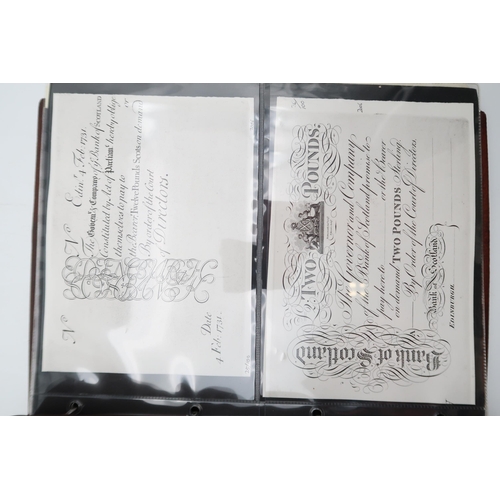 Nº
Edinʳ 4 Feb. 1731.
The Governʳ & Company of yᵉ Bank of SCOTLAND
Constituted by Act of Parliamᵗ hereby oblige
themselves to pay to
or the Bearer Twelve Pounds Scots on demand
By order of the Court
of Directors.
Nº
Date
4 Feb. 1731.
TWO POUNDS.
The Governor and Company
of the Bank of Scotland promise to
pay here to or the Bearer
on demand TWO POUNDS Sterling
By Order of the Court of Directors
Bank of Scotland
EDINBURGH.
Bank of Scotland